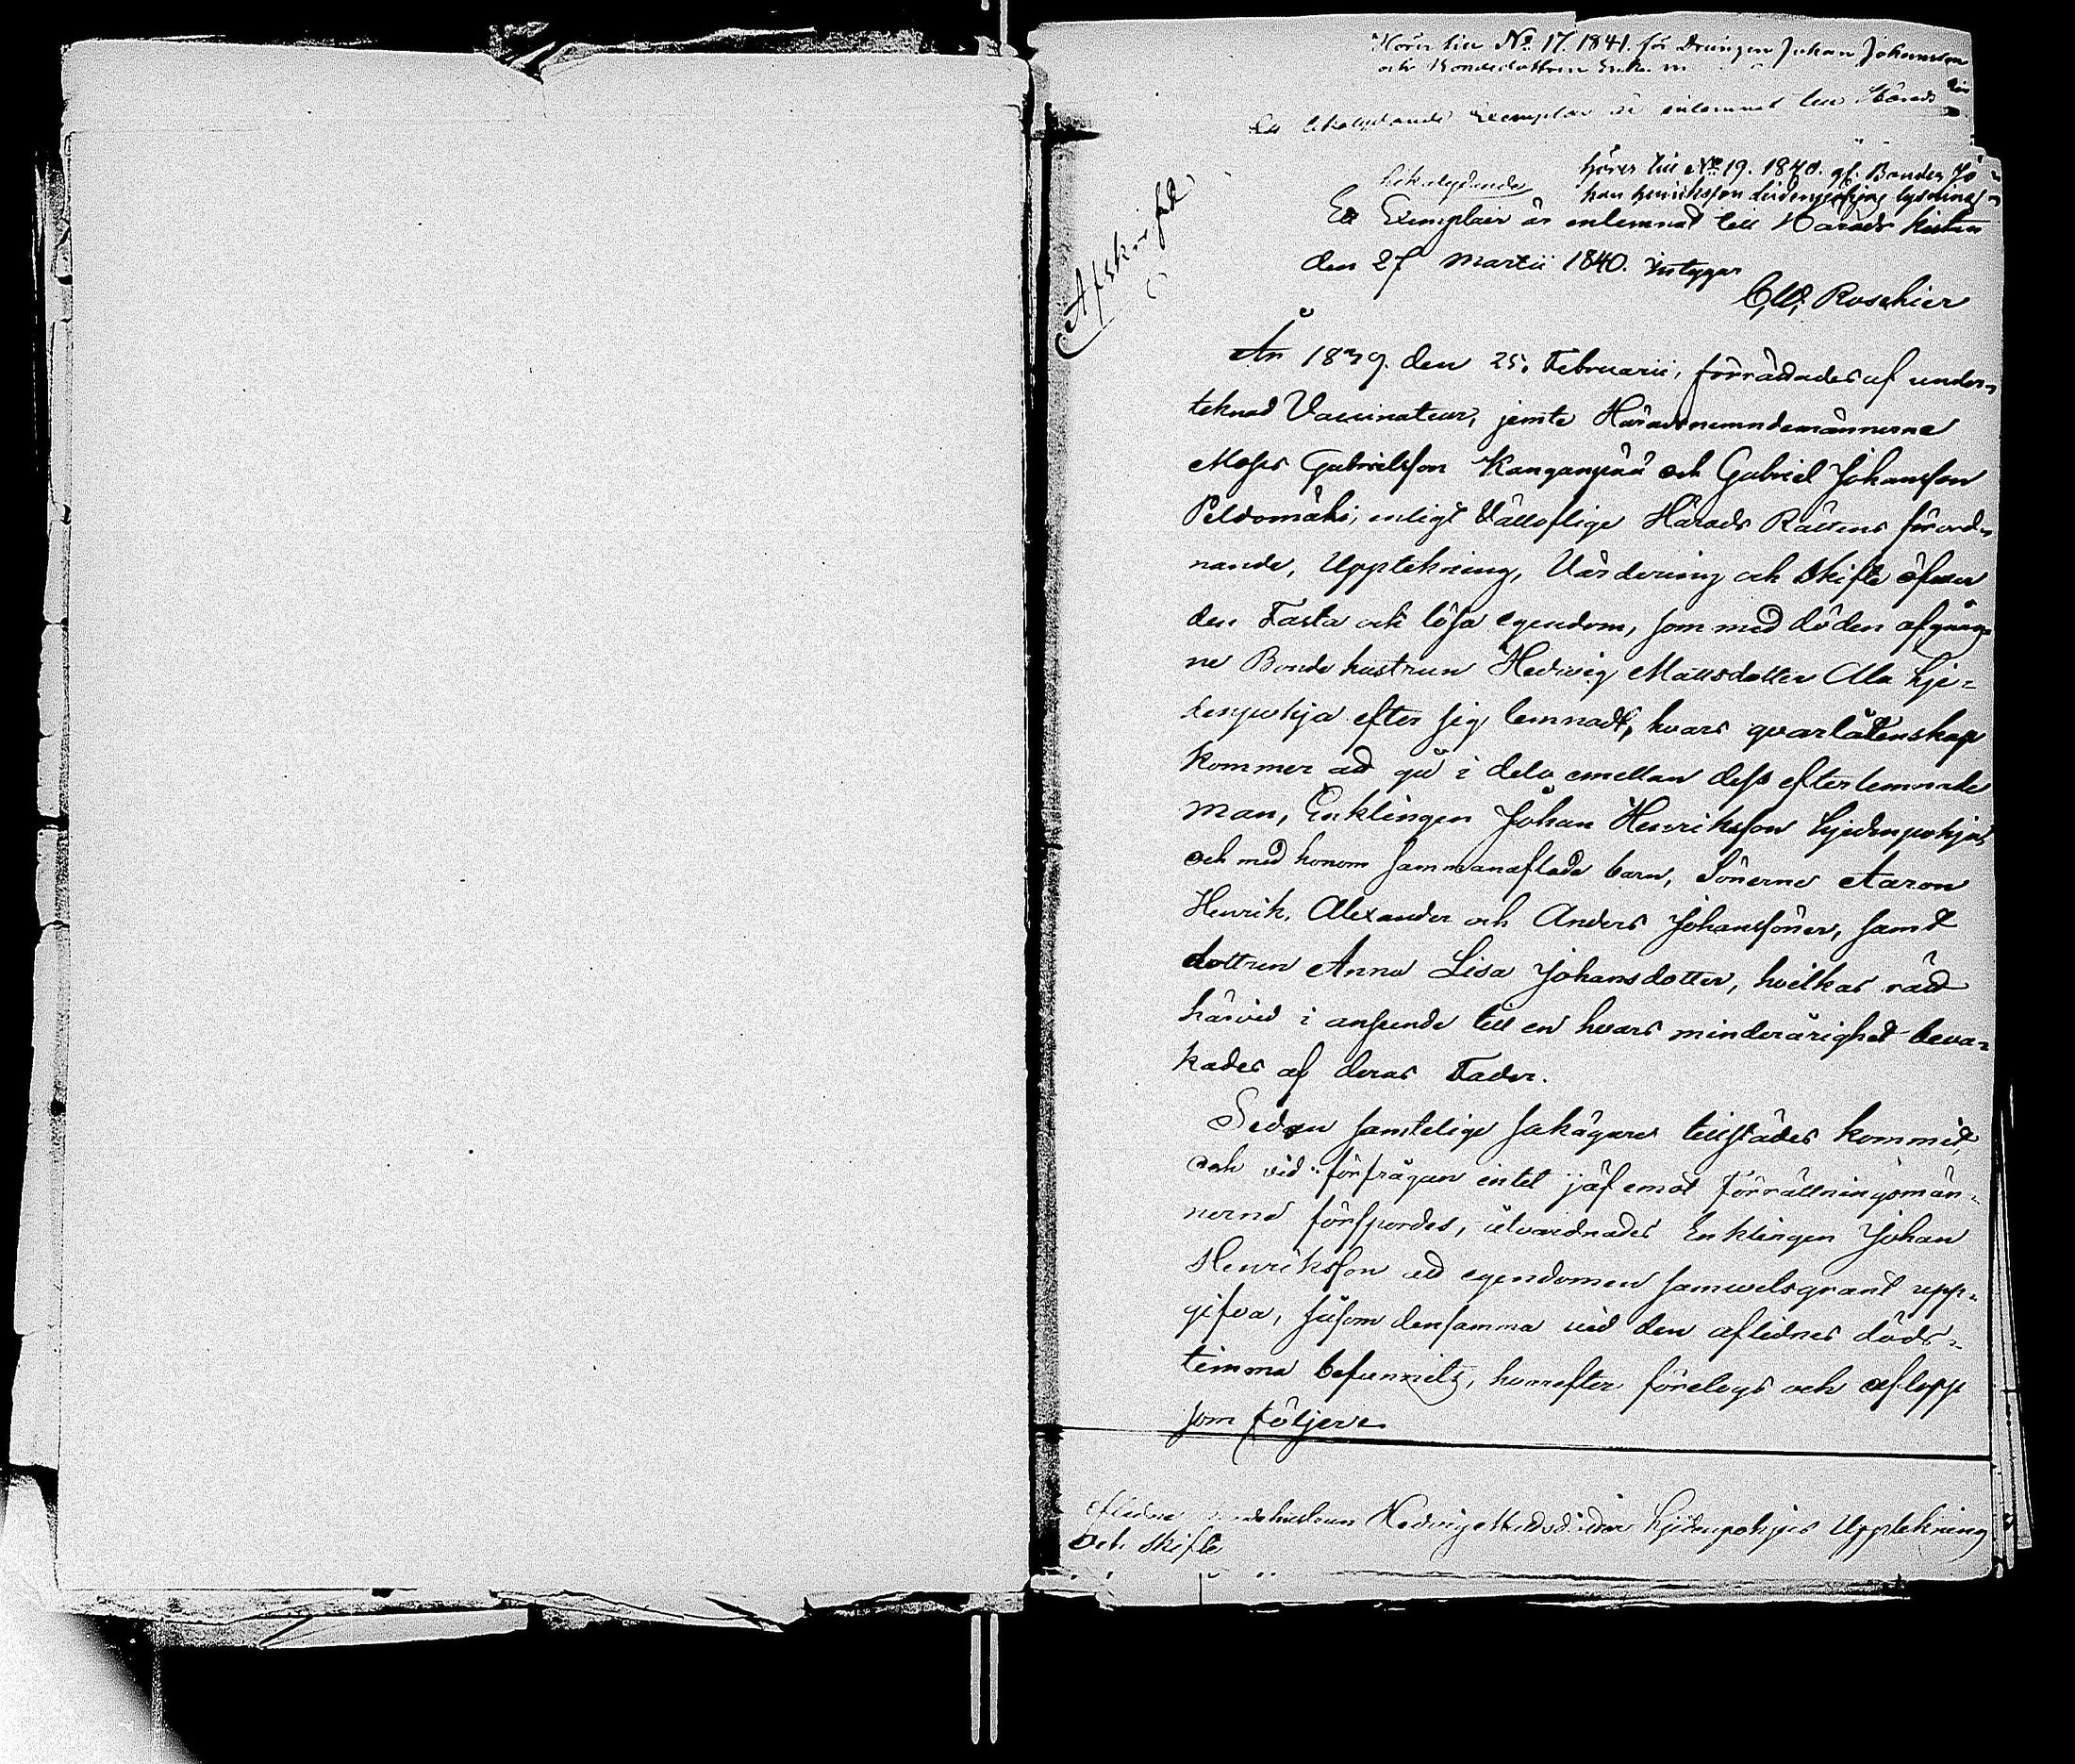 Hörer till No 17. 1841. för Drängen Johan Johansson
och Bondedottren
Ett likalydande Exemplar är inlemnat till Härads
hörer till No 19. 1840. gf. Bonden Jo
han Henriksson Hiedenpohjas lysning
likalydande
Ett Exemplair är inlemnad till Härads kistan
den 27 Martii 1840. intygar
C. W. Roschier
Afskrifed
År 1839. den 25. Februarii, förrättades af under=
teknad Vaccinateur, jemte Häradsnemndemännerne
Moses Gabrielsson Kanganpää och Gabriel Johansson
Peldomäki, enligt Välloflige Härads Rättens förord=
nande, Upptekning, Värdering och Skifte öfver
den Fasta och lösa egendom, som med döden afgång=
ne Bonde hustrun Hedvig Mattsdotter Ala Hje=
denpohja efter sig lemnadt, hvars qvarlåtenskap
kommer ad gå i delo emellan dess efterlemnade
man, Enklingen Johan Henriksson Hjedenpohja,
och med honom sammanaflade barn, Sönerne Aaron
Henrik, Alexander och Anders Johanssöner, samt
dottren Anna Lisa Johansdotter, hvilkas rätt
härvid i anseende till en hvars minderårighet beva=
kades af deras Fader.
Sedan samtelige sakägare tillstädes kommit,
och vid förfrågan intet jäf emot Förrättningsmän=
nerne försportes, åtvarnades Enklingen Johan
Henriksson ad egendomen samvetsgrant upp=
gifva, såsom densamma vid den aflidnes döds=
timma befunnits, hvarefter förelogs och aflopp
som följer.
Aflidne Bondehustrun Hedvig Mattsdotter Hjedenpohjas Upptekning
och Skifte